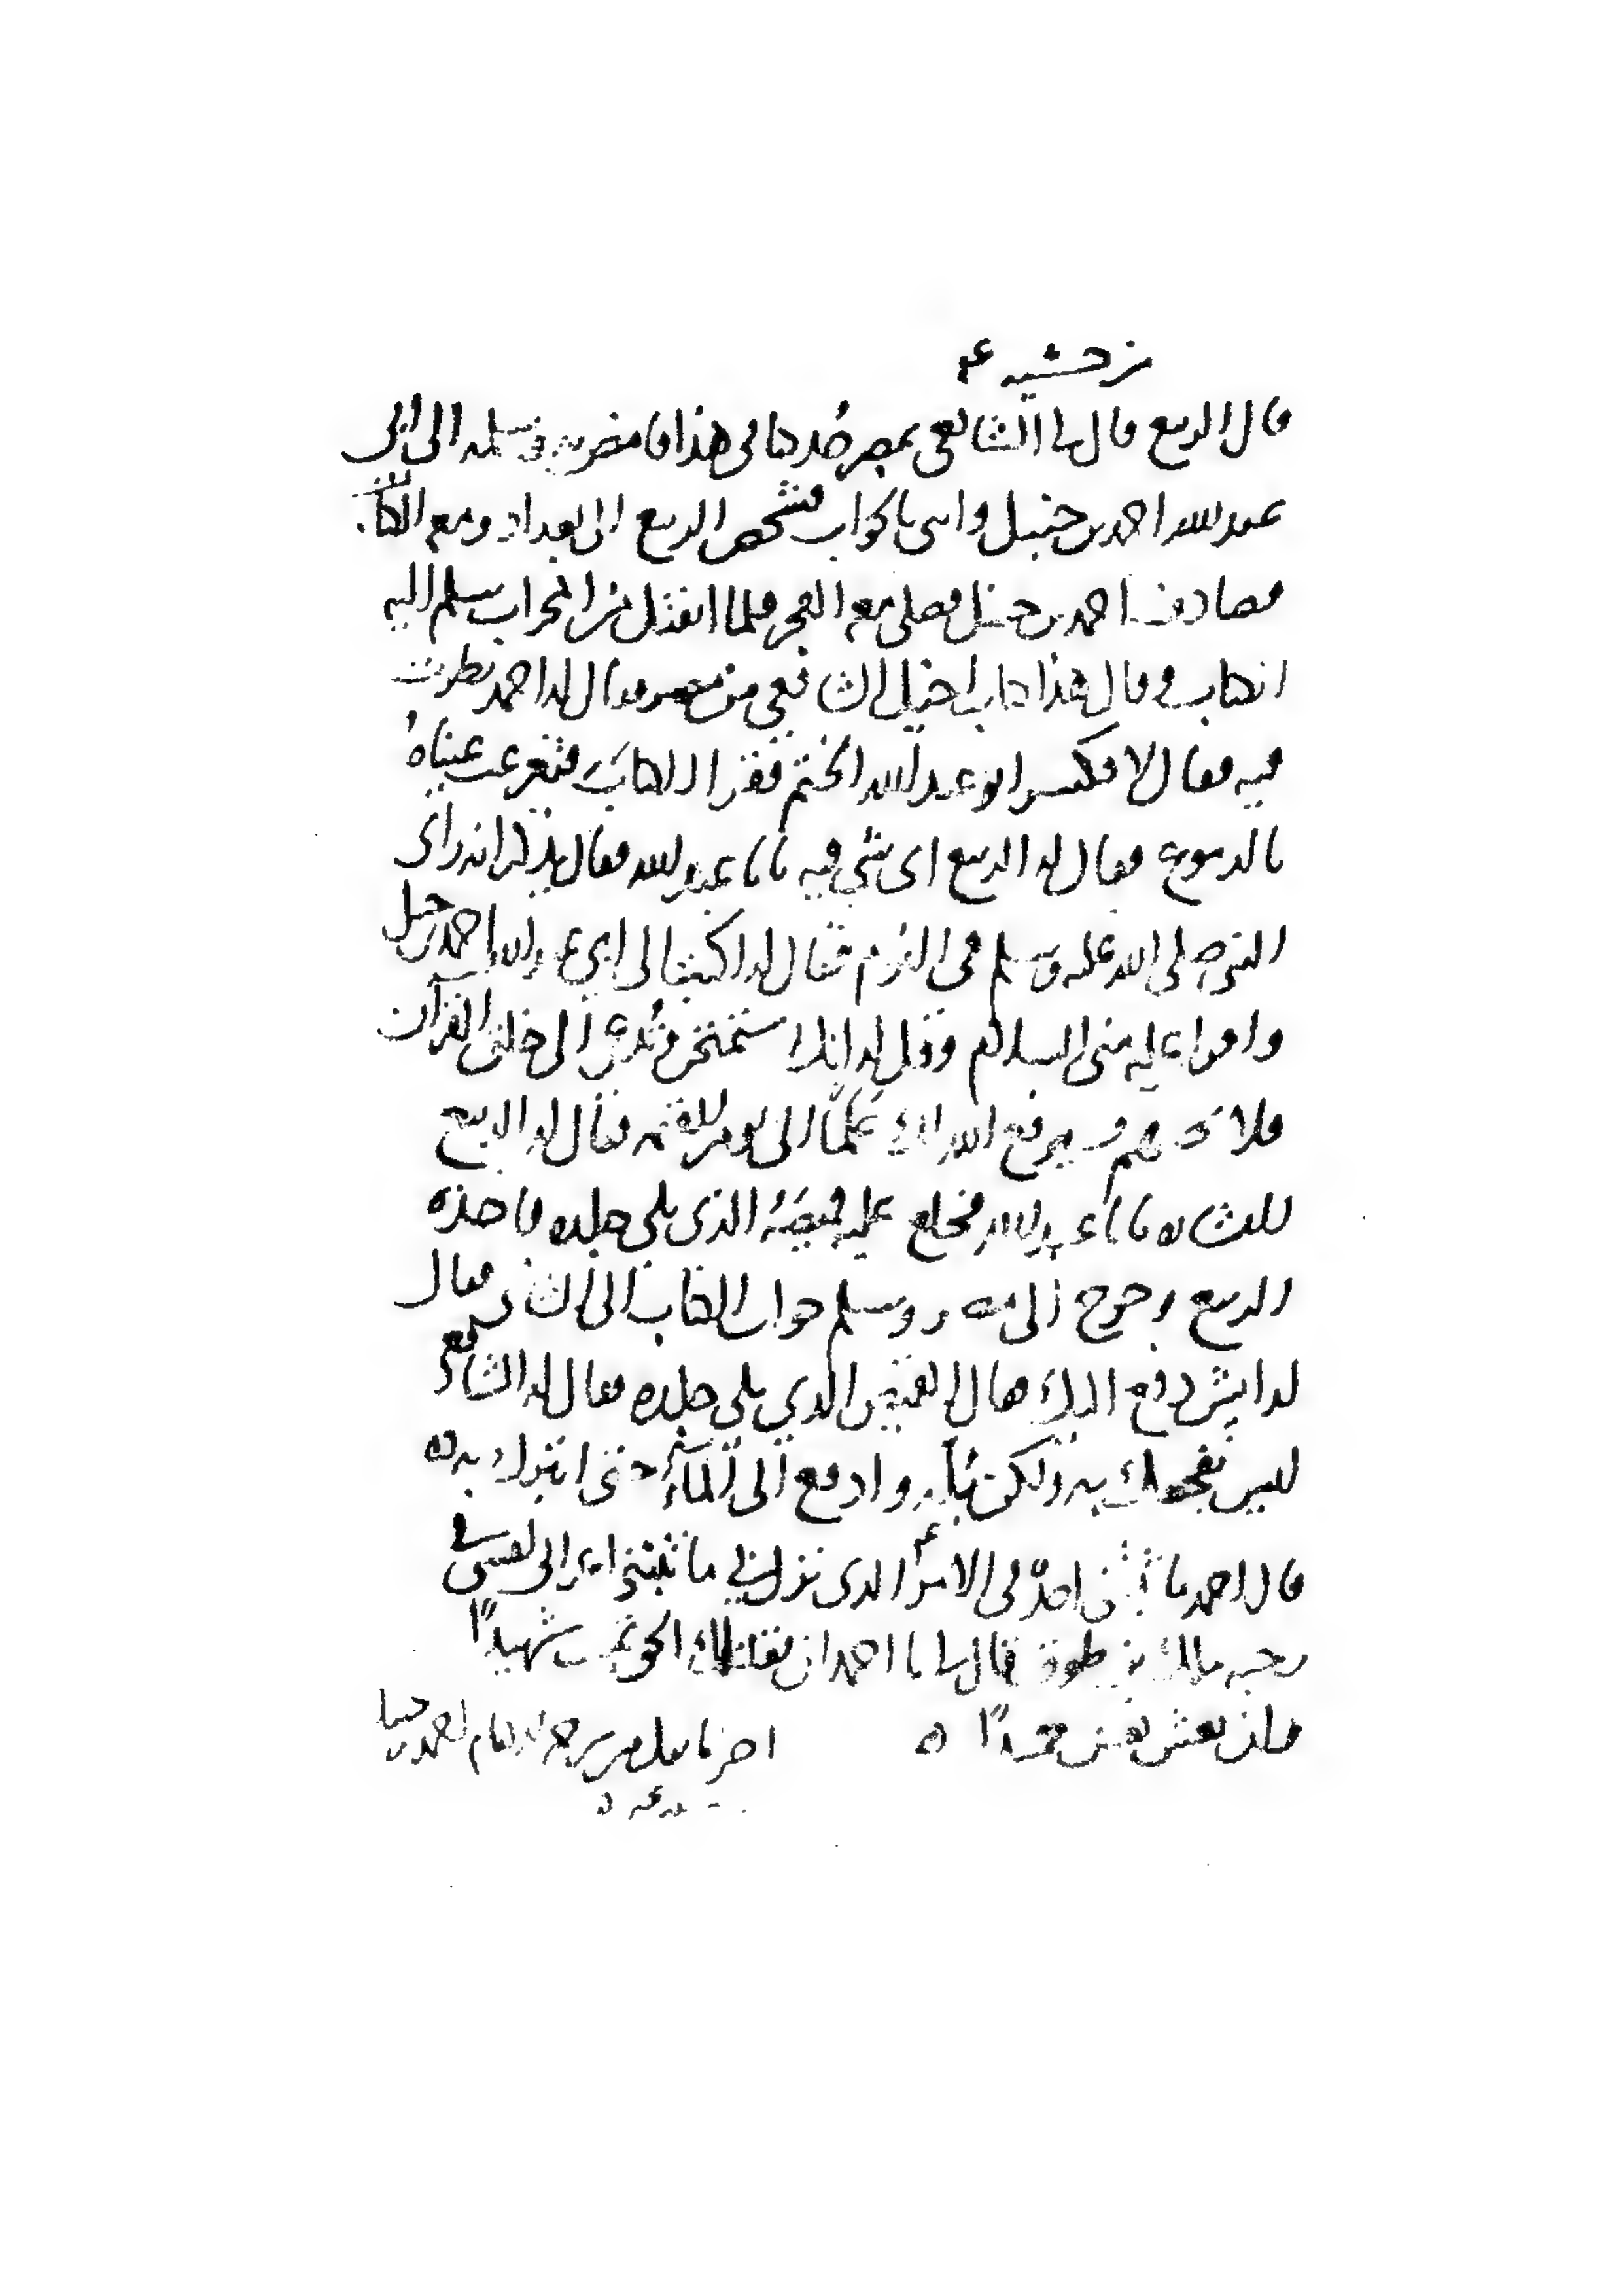 قال الربيع قال لي الشافعي بمصر خذ كتابي هذا فامض به وسلمه الى ابي
عبد الله احمد بن حنبل واتني بالجواب فشخص الربيع الى بغداد ومعه الكتاب
فصادف احمد بن حنبل فصلى معه الفجر فلما انفتل من المحراب سلم اليه
الكتاب وقال هذا كتاب اخيك الشافعي من مصر فقال له احمد نظرت
فيه فقال لا فكسر ابو عبد الله الختم فقرا الكتاب فتغرغرت عيناه
بالدموع فقال له الربيع اي شي فيه يا با عبد الله فقال يذكر انه راى
النبي صلى الله عليه وسلم في النوم فقال له اكتب الى ابي عبد الله احمد بن حنبل
واقرا عليه مني السلام وقل له انك ستمتحن وتدعى الى خلق القرآن
فلا تجبهم فسيرفع الله لك علما الى يوم القيمة فقال له الربيع
البشارة يا با عبد الله فخلع عليه قميصه الذي يلي جلده فاخذه
الربيع وخرج الى مصر وسلم جواب الكتاب الى الشافعي فقال
له ايش دفع اليك قال القميص الذي يلي جلده فقال له الشافعي
ليس نفجعك به ولكن بله وادفع الي الماء حتى اتبرك به
قال احمد ما ثبتني احد في الامر الذي نزل بي ما ثبتني اعرابي لقيني في
رحبة مالك بن طوق قال لي يا احمد ان يقتلك الحق تمت شهيدا
وان تعش تعش حميدا